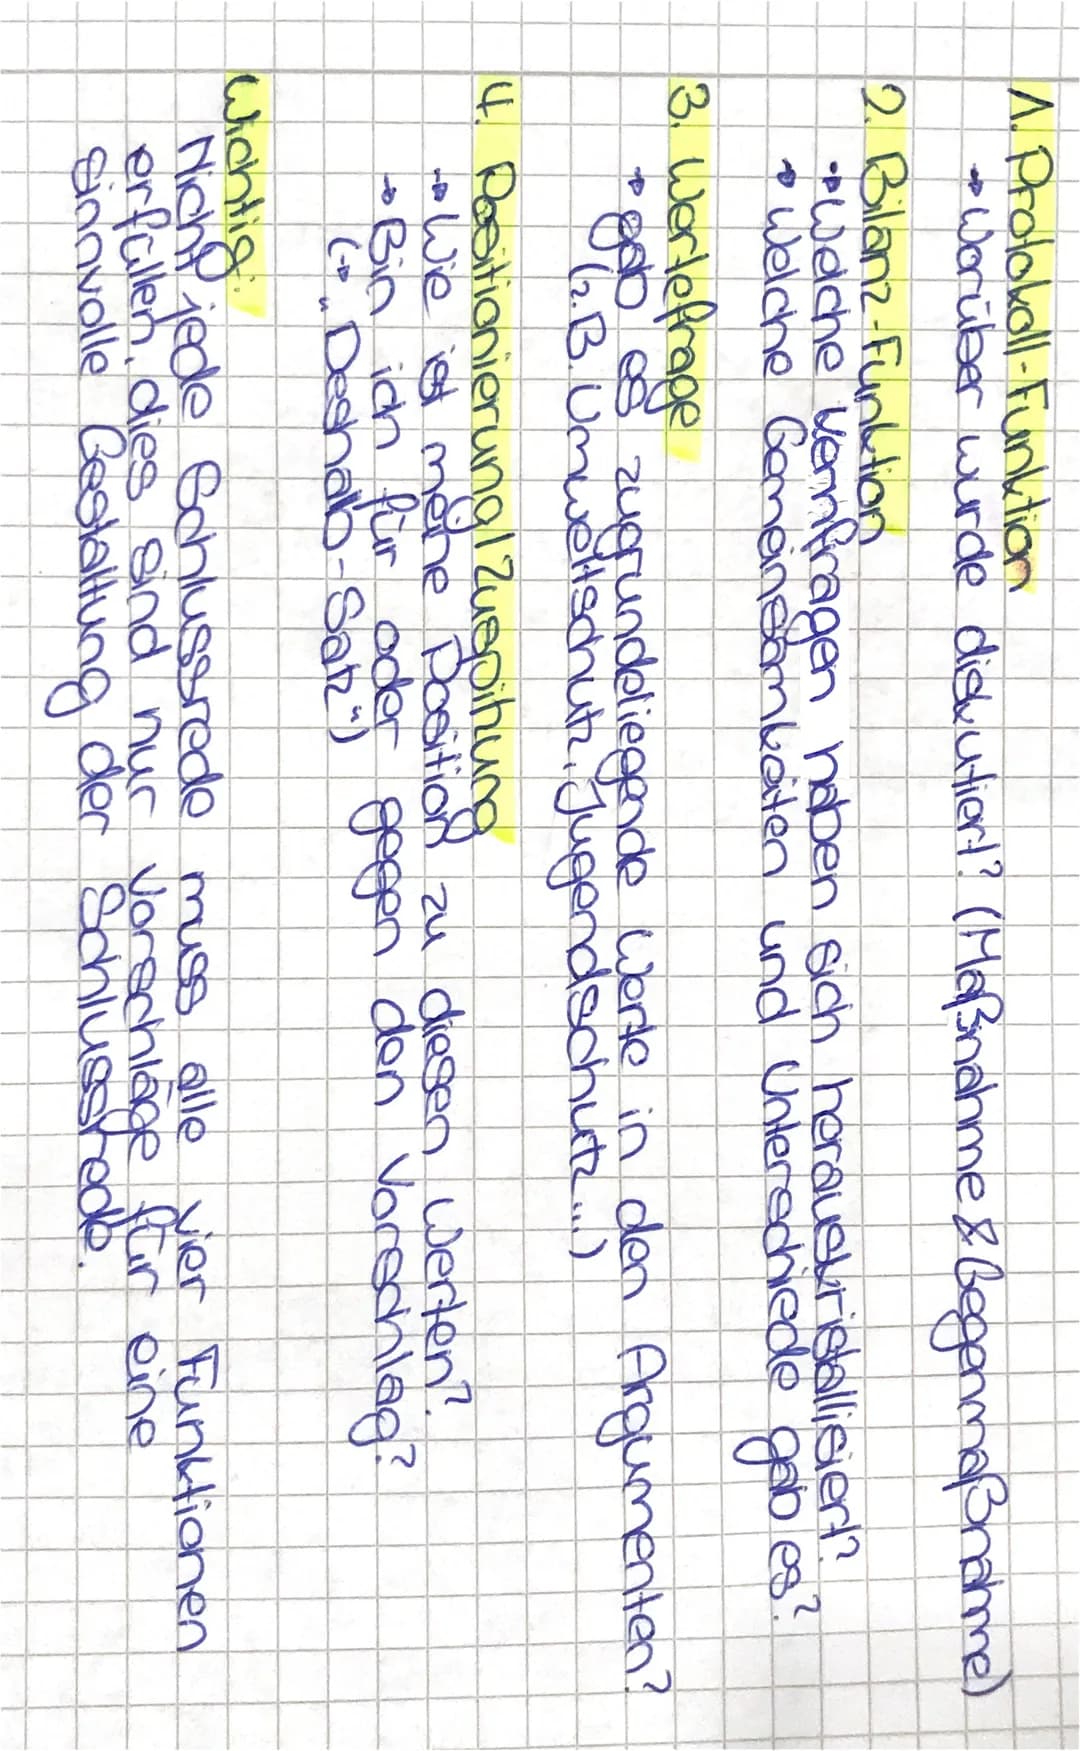 1. Protokoll-Funktion
→ Worüber wurde diskutiert? (Maßnahme & Gegenmaßnahme)
2. Bilanz-Funktion
→ Welche Kernfragen haben sich herauskristallisiert?
→ Welche Gemeinsamkeiten und Unterschiede gab es?
3. Wertefrage
→ gab es zugrundeliegende Werte in den Argumenten?
(z.B. Umweltschutz, Jugendschutz...)
4. Positionierung / Zuspitzung
→ Wie ist meine Position zu diesen Werten?
→ Bin ich für oder gegen den Vorschlag?
(→ „Deshalb-Satz")
Wichtig:
Nicht jede Schlussrede muss alle vier Funktionen
erfüllen, dies sind nur Vorschläge für eine
sinnvolle Gestaltung der Schlussrede.